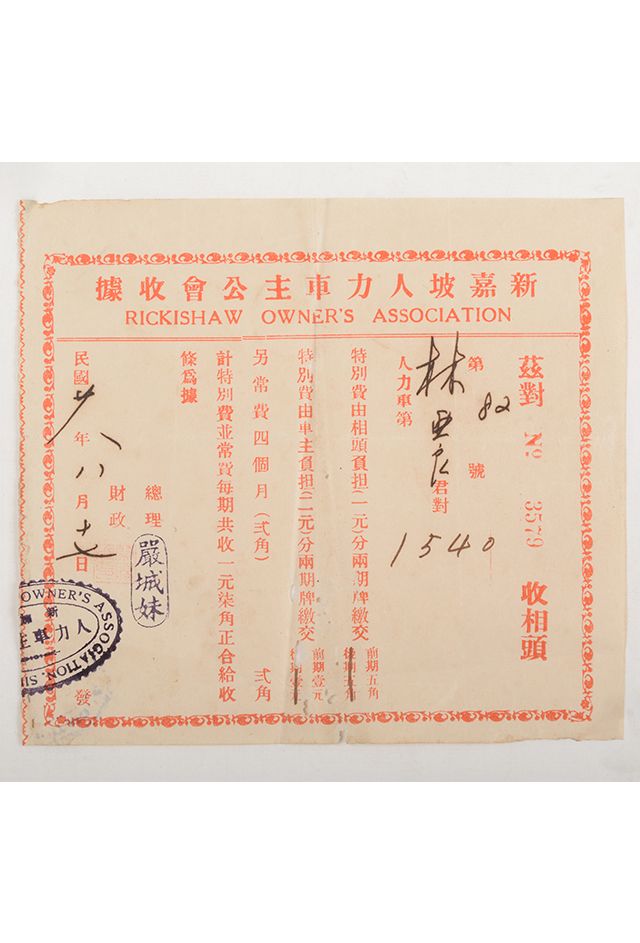 新嘉坡人力車主公會收據
RICKISHAW OWNER'S ASSOCIATION
茲對 No 3579 收相頭
第 82 號
林亞良君對
人力車第 1540
特別費由相頭負担(一元)分兩期牌繳交 前期五角 後期五角
特別費由車主負担(二元)分兩期牌繳交 前期壹元 後期壹元
另常費四個月(弍角) 弍角
計特別費並常費每期共收一元柒角正合給收
條為據
總理
財政
嚴城妹
民國廿八年八月十七日 發
OWNER'S ASSOCIATION. SI
新
人力車主